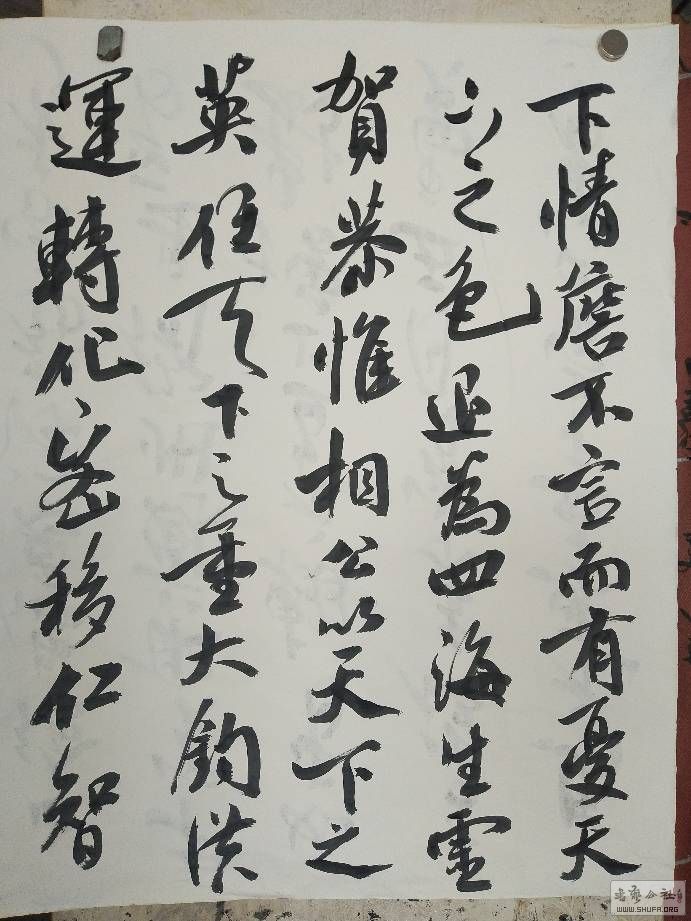 下情磨不言而有憂天
下之色退為四海生靈
賀恭惟相公以天下之
英任天下之重大鈞洪
運轉化密移仁智
书磨公社
WWW.SHUFA.ORG